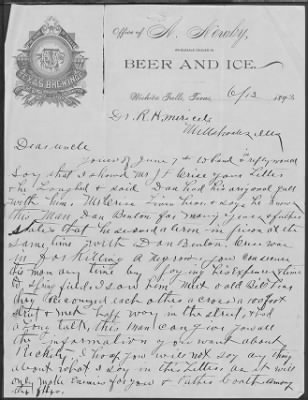 Office of A. Newby,
BEER AND ICE.
TEXAS BREWING
Wichita Falls, Texas, 6/13 189
Dr. R. H.
Dear uncle
Yours of June 7 to hand I reply
Say that I showed Mr. J. Crice your letter
& he Laughed & said Dan had his original gall
with him. Mr Crice knows him & says he knew
this Man Dan Benton for many years & further
States that he served a term in prison at the
Same time with Dan Benton. Crice was
in for Killing a Negrow. you can use
this man any time by paying his expenses & time
they recognized each other across 100 foot
Street & met half way in the street, & had
a long talk, this man can give you all
the information you want about
I hope you will not say any thing
about what I say in this letter, as it will
only make Enemies for you &